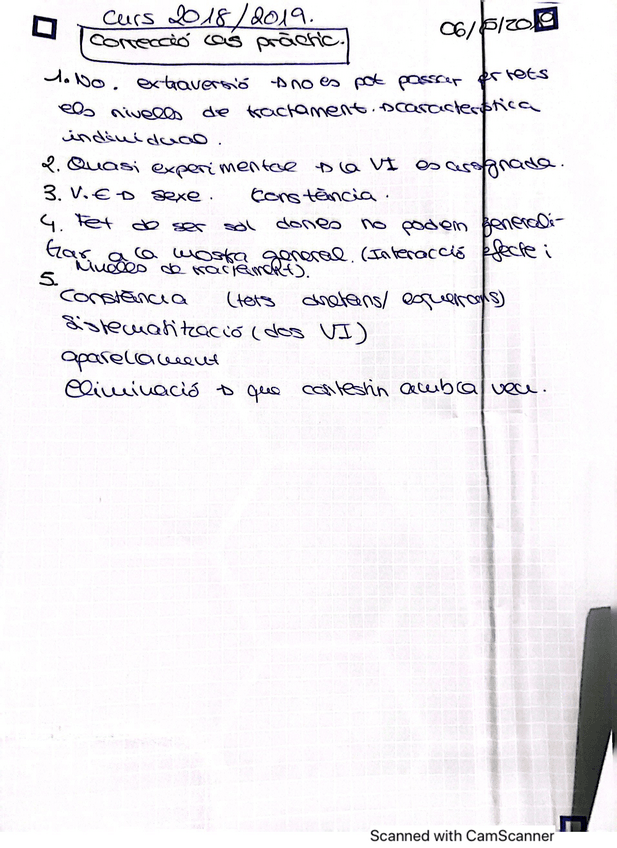 Curs 2018/2019.
Correcció cas pràctic.
1. No. extraversió → no es pot passar per tots
els nivells de tractament. → característica
individual.
2. Quasi experimental → la VI es assignada.
3. V.E → sexe. Constància.
4. Fet de ser sol dones no podem generali-
tzar a la mostra general. (Interacció efecte i
Nivells de tractament).
5.
Constància (tots dretans/ esquerrans)
Sistematització (dos VI)
aparellament
Eliminació → que contestin amb la veu.
Scanned with CamScanner